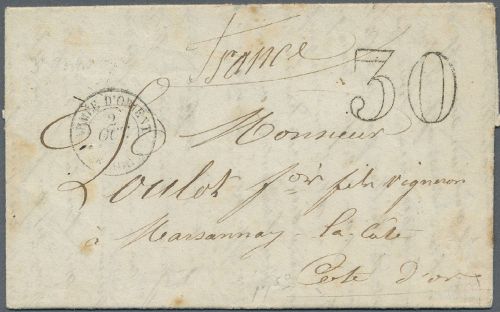 France
30
ARMÉE D'ORIENT
2
OCT
Monsieur
Loulot fils vigneron
à Marsannay-la-Cote
Cote d'or